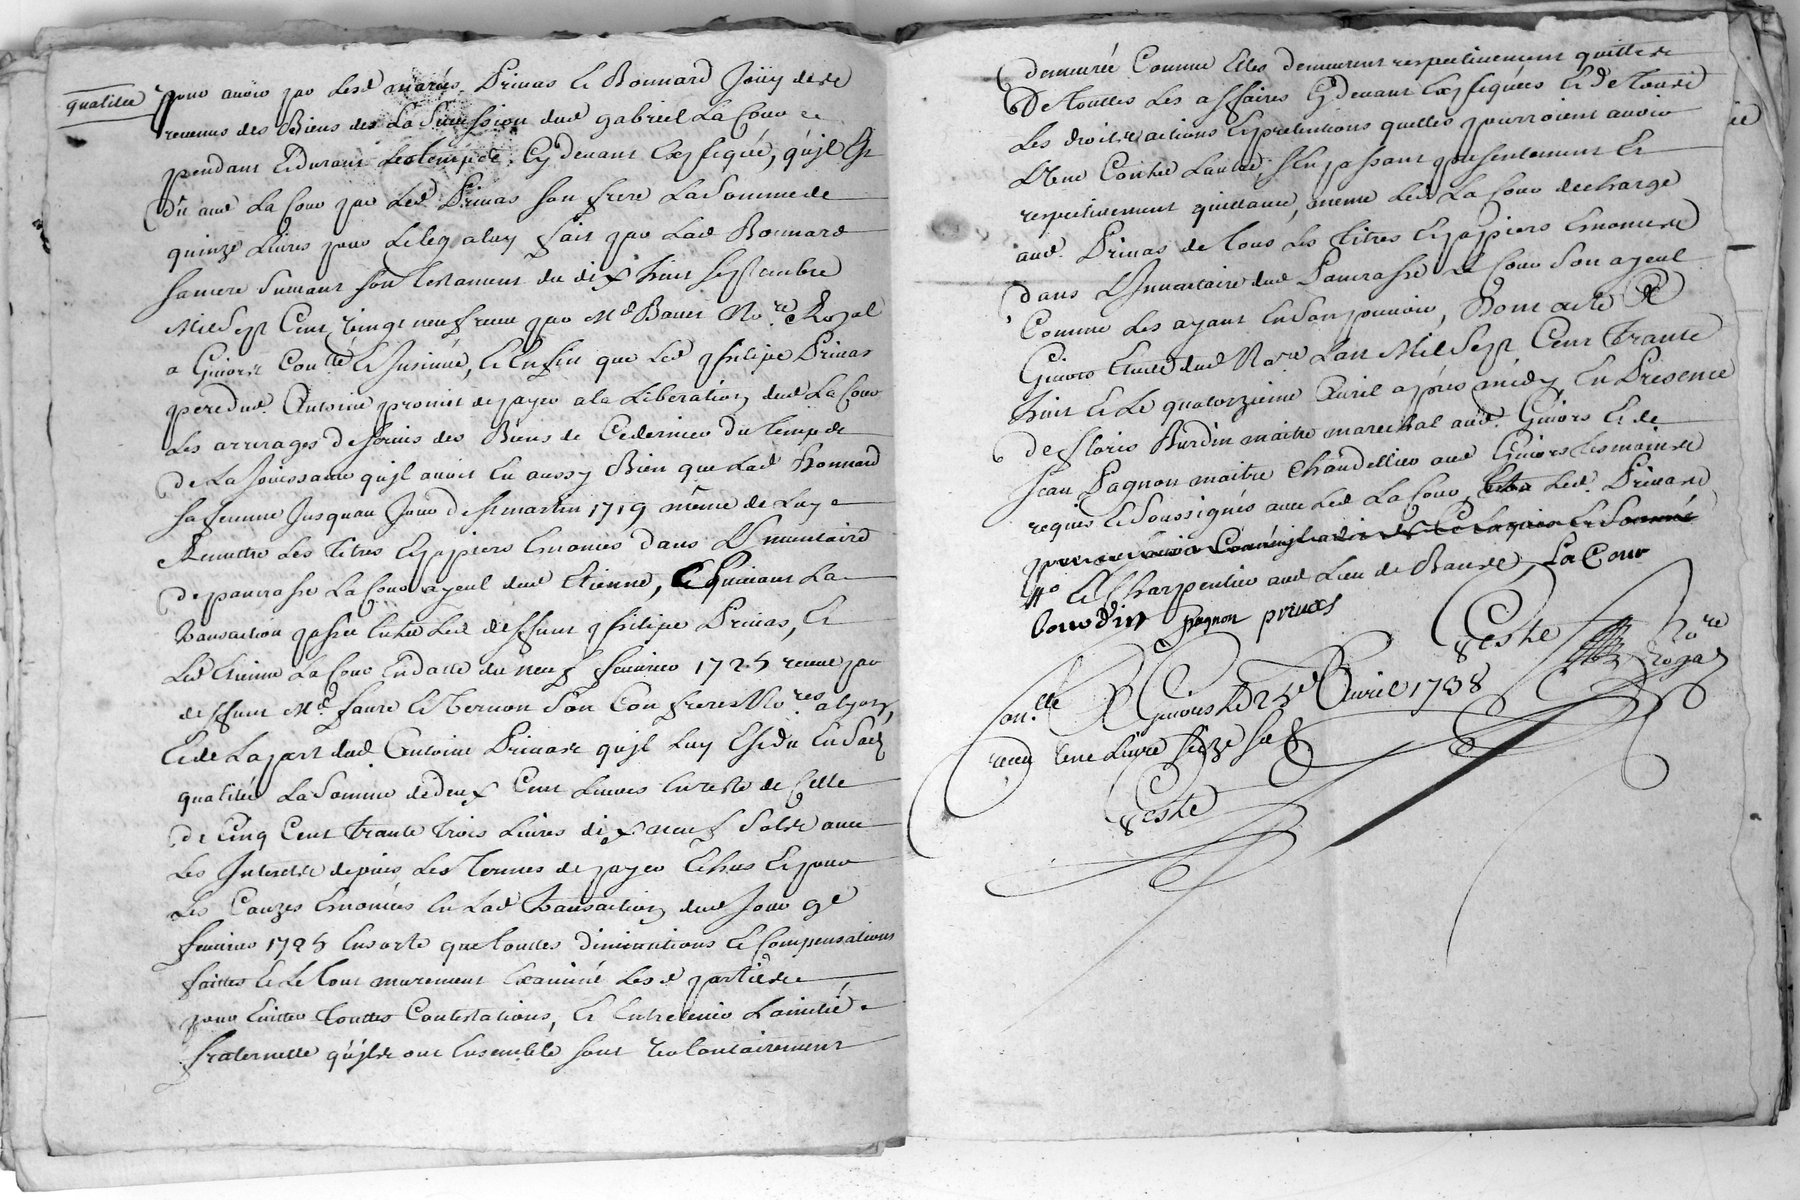 qualitée
pour avoir par lesd mariés Primas et Bonnard Joüy desd
revenus des Biens de La Succession dud gabriel La Cour et
pendant Et durant les temps de Cy devant Expliqué, qu'jl Est
Dû aud La Cour par Led Primas son frere La Somme de
quinze Livres pour Le leg a luy fait par Lad Bonnard
sa mere Suivant son Testament du dix huit septembre
Mil Sept Cent vingt neuf receu par Me Bavet No.re Royal
a Givors Conllé Et Jnsinué, Et Enfin que Led philipe Primas
pere dud Antoine promit de payer a la Liberation dud La Cour
Les arrerages de servis des Biens de du temps de
De La Joüissance qu'jl avoit Eu aussy Bien que Lad Bonnard
sa femme Jusquau Jour de st martin 1719 même de Luy
Remettre Les Titres Et papiers Enoncés dans L'Jnventaire
De pancrasse La Cour ayeul dud Etienne, Et suivant La
Transaction passée Entre Led deffunt philipe Primas, Et
Led Etienne La Cour En datte du neuf fevrier 1725 receue par
deffunt Me faure Et Bernon Son Confreres No.res a Lyon,
Et de La part dud Antoine Primas qu'jl Luy Est du En Sad
qualitée La Somme de deux Cent Livres En reste de Celle
de Cinq Cent Trante Trois Livres dix neuf Sols avec
Les Jnterets depuis Les Termes de payer Echus Et pour
Les Causes Enoncées En Lad Transaction dud Jour 9e
fevrier 1725 En sorte que Touttes diminutions Et Compensations
faittes Et Le Tout meurement Examiné Lesd parties
pour Eviter Touttes Contestations, Et Entretenir L'amitié
fraternelle qu'jls ont Ensemble sont volontairement
demeurée Comme Elles demeurent respectivement quitte
De Touttes Les affaires Cy devant Expliquées Et de Tous
Les droits actions Et pretentions quelles pourroient avoir
L'Une Contre Lautre, s'En passant presentement Et
respectivement quittance, meme Led La Cour decharge
aud Primas de Tous Les Titres Et papiers Enoncés
dans L'Jnventaire dud Pancrasse La Cour Son ayeul
Comme Les ayant En Son pouvoir, Dont acte
Givors Etude dud No.re Lan Mil Sept Cent Trante
huit Et Le quatorzieme Avril après midy En Presence
De floris Burdin maitre marechal aud Givors Et de
Jean Pagnon maitre Chandellier aud Givors Tesmoins
requis Et Soussignés avec Led La Cour, Led Primas
Et Charpentier aud Lieu de La Cour
bourdin Pagnon primas
Teste No.re Royal
Con.llé A Givors Le 25e Avril 1738
receu Une Livre seize sols
Teste